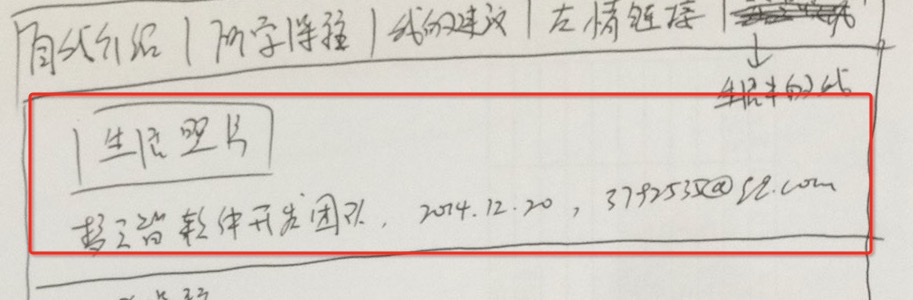 自我介绍 | 所学课程 | 我的建议 | 友情链接 |
生活中的我
生活照片
软件开发团队, 2014.12.20, 3792535@qq.com